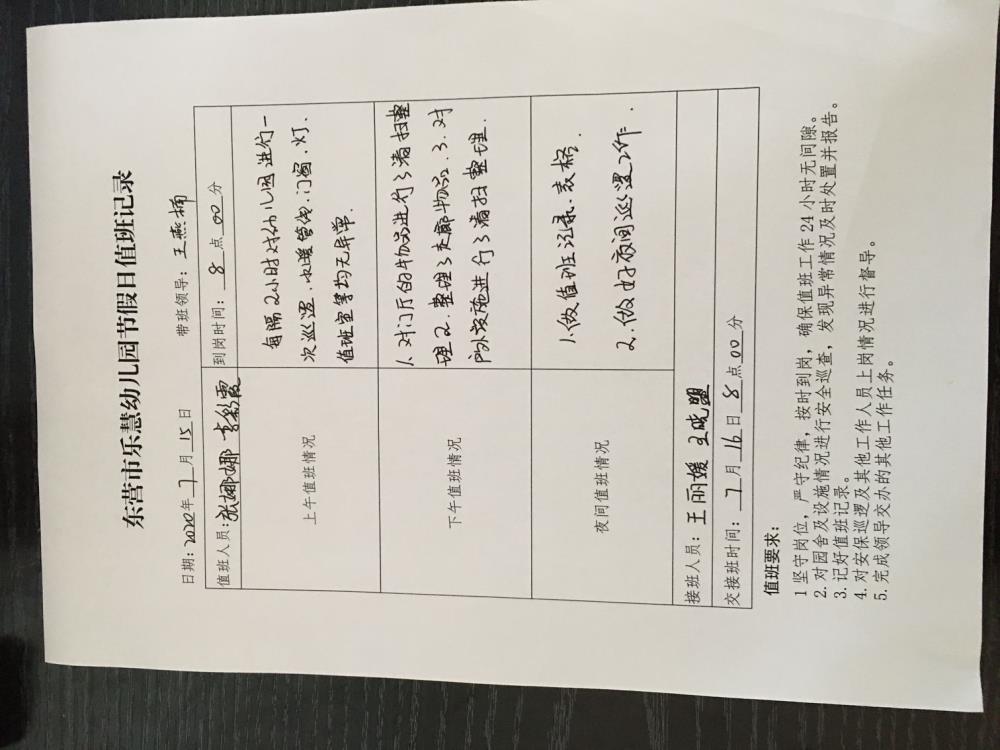 东营市乐慧幼儿园节假日值班记录
日期：2020年 7 月 15 日 带班领导：王燕楠
值班人员：张娜娜 李彩霞 到岗时间：8 点 00 分
上午值班情况
每隔2小时对幼儿园进行一
次巡逻．水暖管线．门窗．灯．
值班室等均无异常．
下午值班情况
1．对门厅的物品进行了清扫整
理2．整理了走廊物品．3．对
户外设施进行了清扫整理．
夜间值班情况
1.做值班记录．表格
2．做好夜间巡逻工作．
接班人员：王丽媛 王晓盟
交接班时间：7 月 16 日 8 点 00 分
值班要求：
1 坚守岗位，严守纪律，按时到岗，确保值班工作 24 小时无间隙。
2. 对园舍及设施情况进行安全巡查，发现异常情况及时处置并报告。
3. 记好值班记录。
4. 对安保巡逻及其他工作人员上岗情况进行督导。
5. 完成领导交办的其他工作任务。